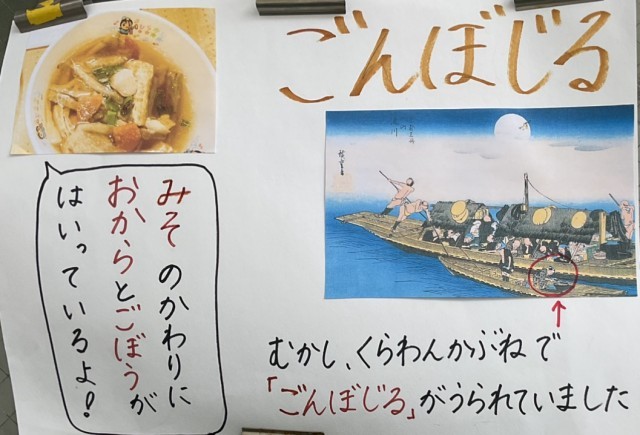 ごんぼじる
みそのかわりに
おからとごぼうが
はいっているよ！
むかし、くらわんかぶねで
「ごんぼじる」がうられていました